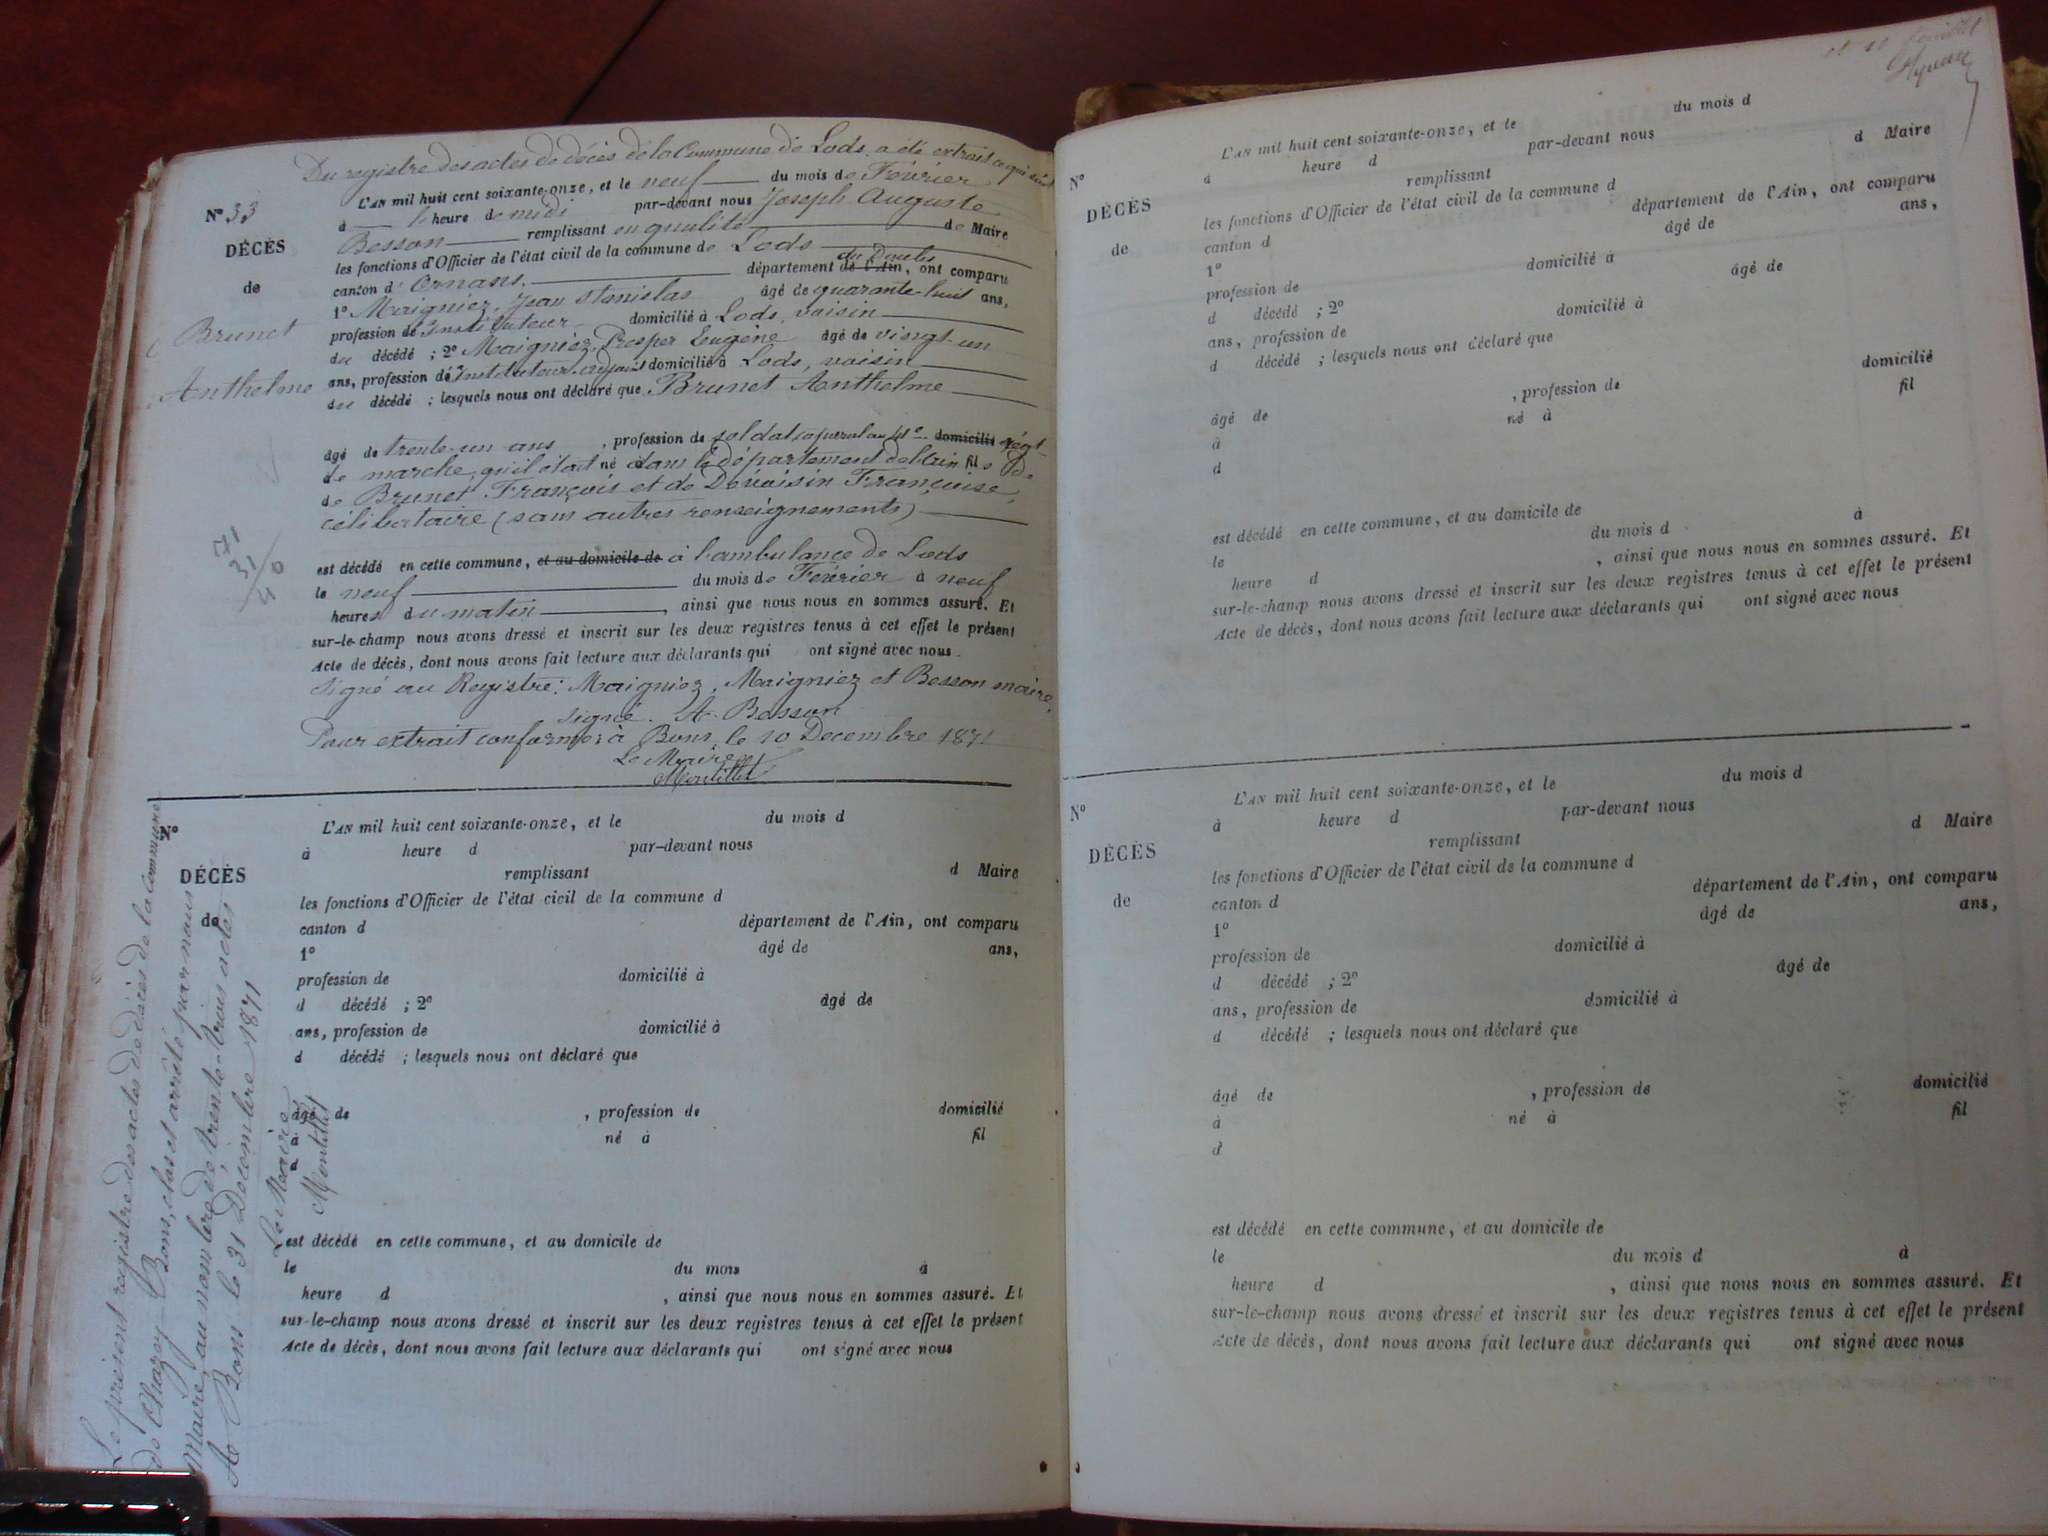 Du registre des actes de décès de la Commune de Lods a été extrait ce qui suit
N° 33
L'AN mil huit cent soixante-onze, et le neuf du mois de Février
à heure de midi par-devant nous Joseph Auguste
DÉCÈS
Besson remplissant en qualité de Maire
les fonctions d'Officier de l'état civil de la commune de Lods
du Doubs
de
canton d'Ornans. département de l'Ain, ont comparu
1° Maigniez, Jean Stanislas âgé de quarante-huit ans,
Brunet
profession de Instituteur domicilié à Lods, voisin
du décédé ; 2° Maigniez, Prosper Eugène âgé de vingt-un
Anthelme
ans, profession de Instituteur-adjoint domicilié à Lods, voisin
du décédé ; lesquels nous ont déclaré que Brunet Anthelme
âgé de trente-un ans , profession de soldat caporal au domicilié régt
de marche, qu'il était né à dans le département de l'Ain fils de
de Brunet François et de Devoisin Françoise,
célibataire (sans autres renseignements)
71
31
40
est décédé en cette commune, et au domicile de à l'ambulance de Lods
le neuf du mois de Février à neuf
heures du matin , ainsi que nous nous en sommes assuré. Et
sur-le-champ nous avons dressé et inscrit sur les deux registres tenus à cet effet le présent
Acte de décès, dont nous avons fait lecture aux déclarants qui ont signé avec nous.
Signé au Registre: Maigniez, Maigniez et Besson maire,
signé. A. Besson
Pour extrait conforme: à Bons, le 10 Decembre 1871
Le Maire
Montillet
N°
L'AN mil huit cent soixante-onze, et le du mois d
à heure d par-devant nous
DÉCÈS
remplissant d Maire
les fonctions d'Officier de l'état civil de la commune d
de
canton d département de l'Ain, ont comparu
1° âgé de ans,
profession de domicilié à
d décédé ; 2° âgé de
ans, profession de domicilié à
d décédé ; lesquels nous ont déclaré que
âgé de , profession de domicilié
à né à fil
d
est décédé en cette commune, et au domicile de
le du mois à
heure d , ainsi que nous nous en sommes assuré. Et
sur-le-champ nous avons dressé et inscrit sur les deux registres tenus à cet effet le présent
Acte de décès, dont nous avons fait lecture aux déclarants qui ont signé avec nous
Le présent registre des actes de décès de la Commune
de Chazey-Bons, clos et arrêté par nous
Maire, au nombre de trente-trois actes
A Bons le 31 Decembre 1871
Le Maire
Montillet
N°
L'AN mil huit cent soixante-onze, et le du mois d
à heure d par-devant nous
DÉCÈS
remplissant d Maire
les fonctions d'Officier de l'état civil de la commune d
de
canton d département de l'Ain, ont comparu
1° âgé de ans,
profession de domicilié à
d décédé ; 2° âgé de
ans, profession de domicilié à
d décédé ; lesquels nous ont déclaré que
âgé de , profession de domicilié
à né à fil
d
est décédé en cette commune, et au domicile de
le du mois d à
heure d , ainsi que nous nous en sommes assuré. Et
sur-le-champ nous avons dressé et inscrit sur les deux registres tenus à cet effet le présent
Acte de décès, dont nous avons fait lecture aux déclarants qui ont signé avec nous
N°
L'AN mil huit cent soixante-onze, et le du mois d
à heure d par-devant nous
DÉCÈS
remplissant d Maire
les fonctions d'Officier de l'état civil de la commune d
de
canton d département de l'Ain, ont comparu
1° âgé de ans,
profession de domicilié à
d décédé ; 2° âgé de
ans, profession de domicilié à
d décédé ; lesquels nous ont déclaré que
âgé de , profession de domicilié
à né à fil
d
est décédé en cette commune, et au domicile de
le du mois d à
heure d , ainsi que nous nous en sommes assuré. Et
sur-le-champ nous avons dressé et inscrit sur les deux registres tenus à cet effet le présent
Acte de décès, dont nous avons fait lecture aux déclarants qui ont signé avec nous